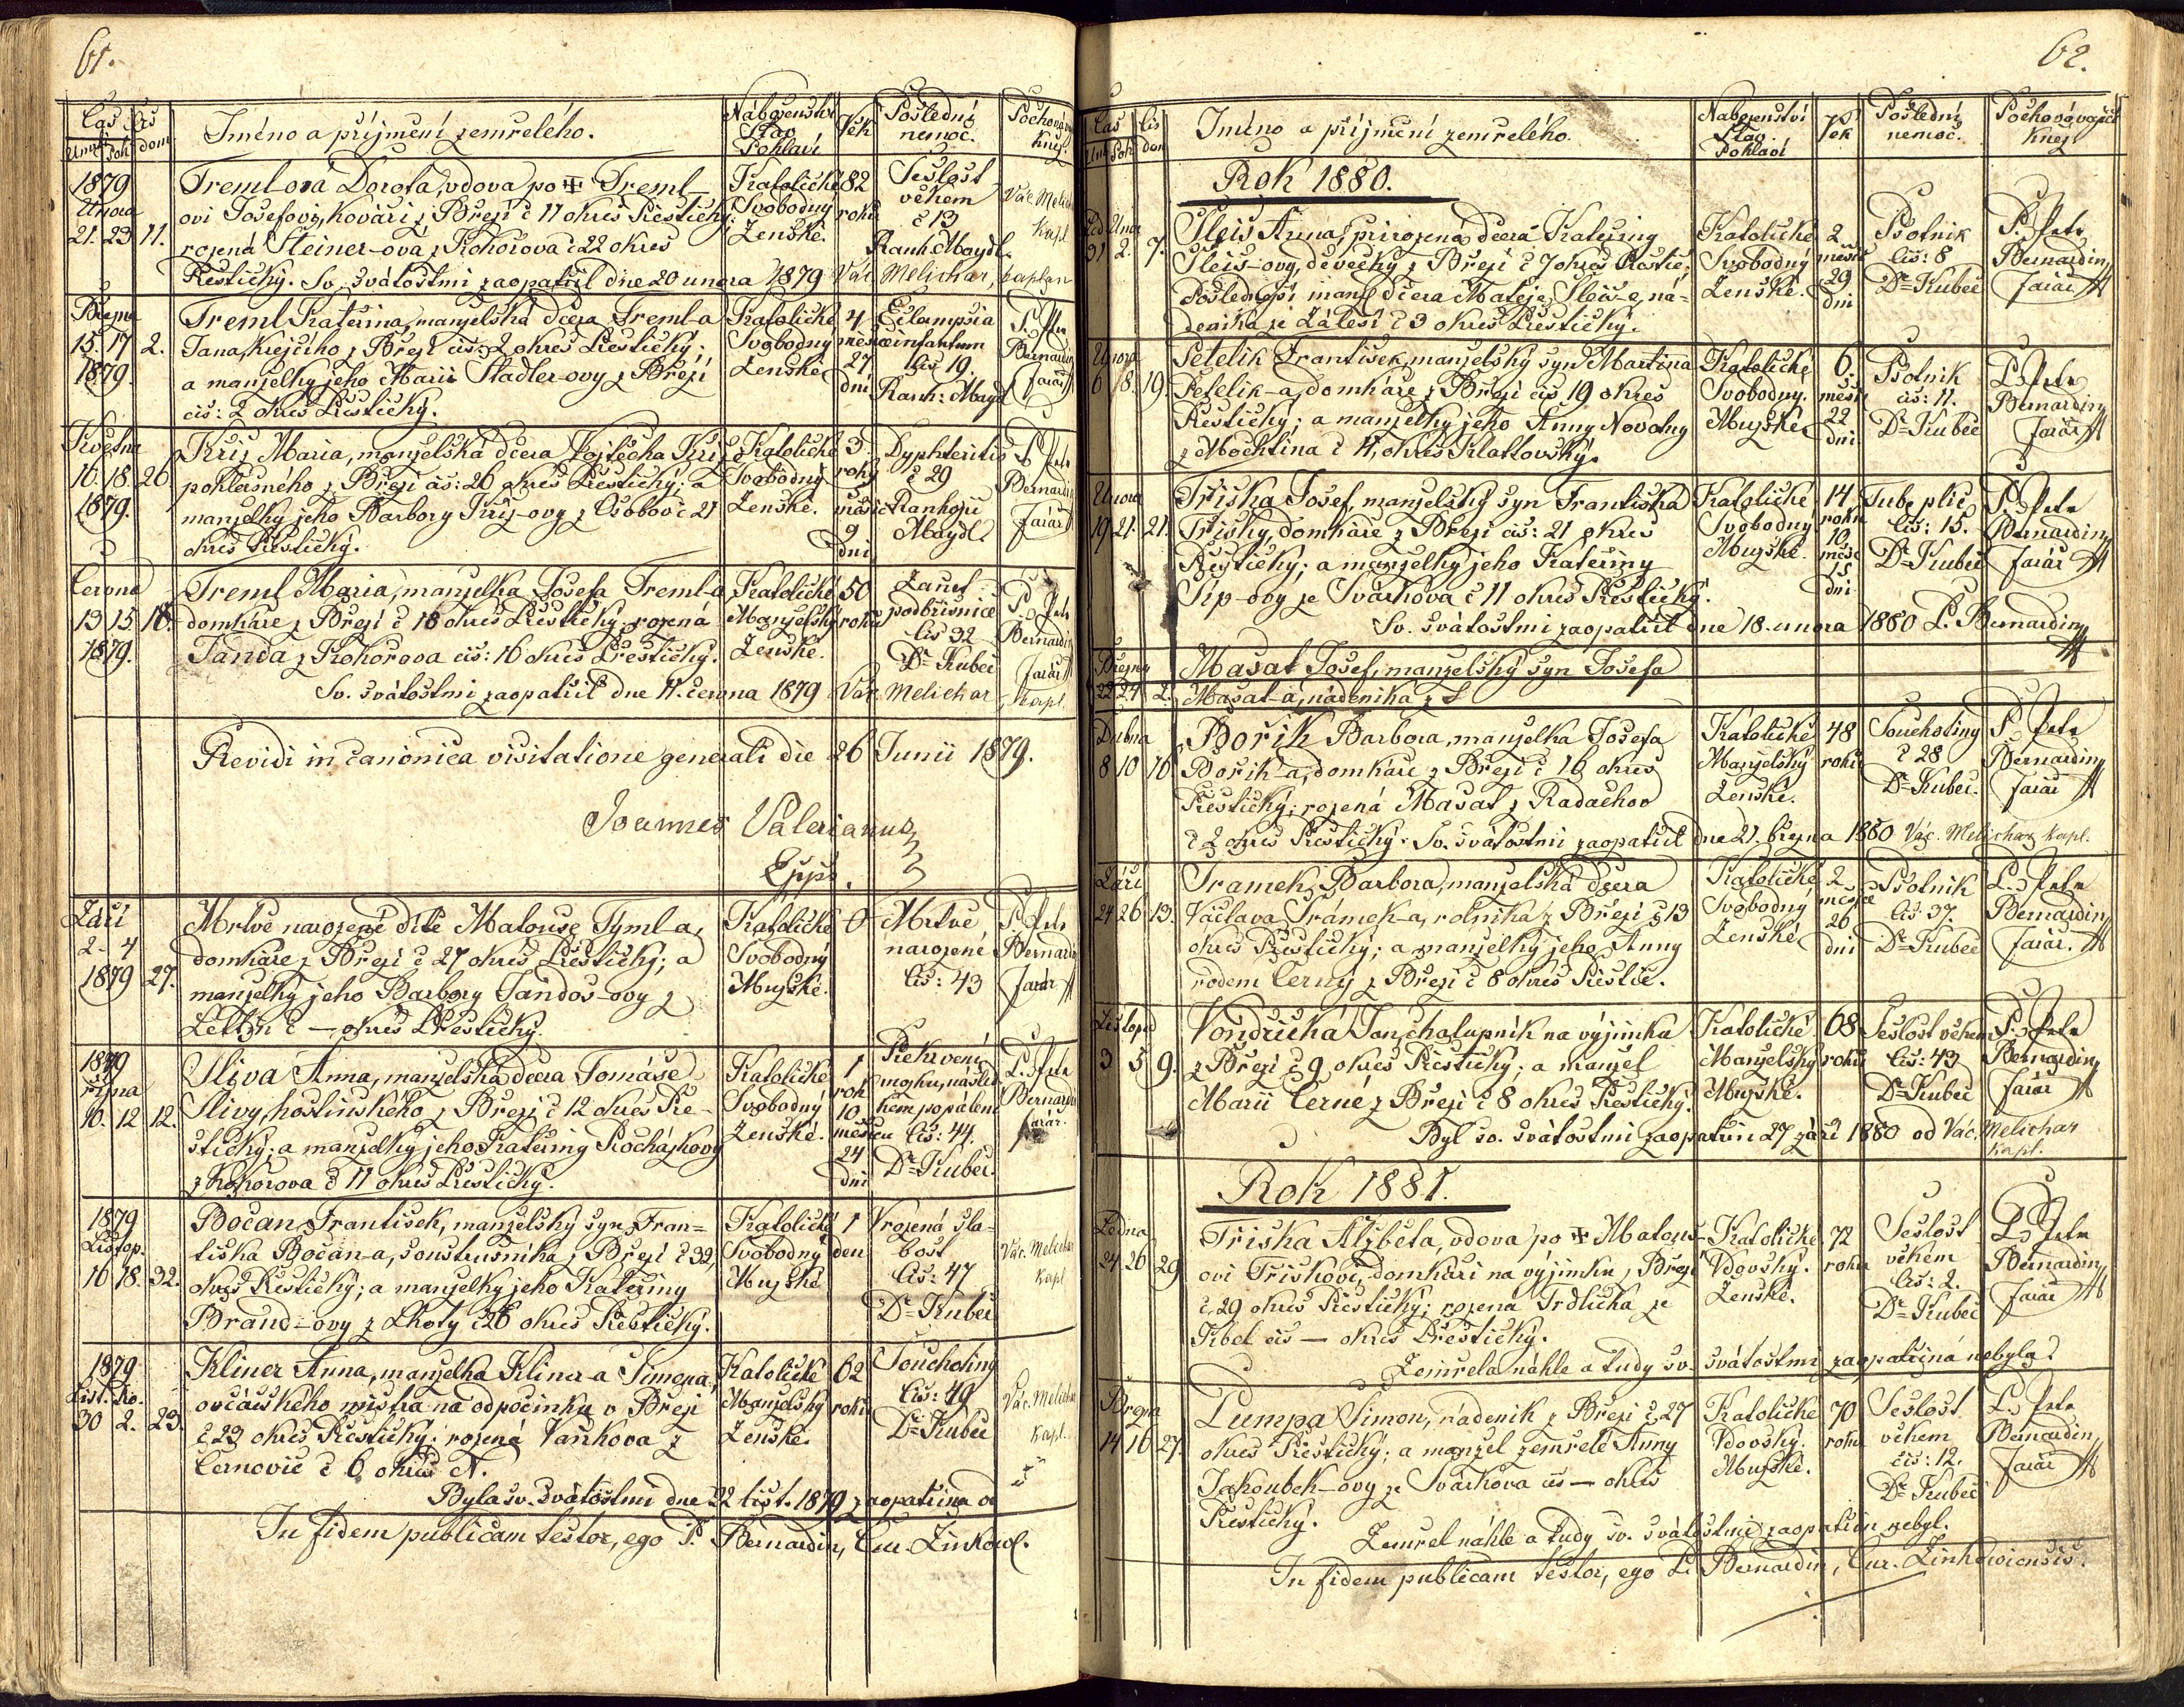 61.
Čas
Čís
Jméno a příjmení zemřelého.
Náboženství
Stav
Pohlaví
Věk
Poslední
nemoc.
dom
1879
Února
21. 23 11.
Tremlová Dorota, vdova po Treml-
ovi Josefovi, kováři z Březí č 11 okres Přestický;
rozená Steiner-ová z Kokořova č 22 okres
Přestický. Sv. svátostmi zaopatřil dne 20 února 1879 Vác. Melichar, kaplan
Katolické
Svobodný
Ženské.
82
roků
Sešlost
věkem
č 13
Ranh: Maydl.
Vác. Melichar
kapl.
Března
15. 17 2.
1879.
Treml Kateřina, manželská dcera Treml-a
Jana, krejčího z Březí čís: 2 okres Přestický;
a manželky jeho Marii Stadler-ovy z Březí
čís: 2 okres Přestický.
Katolické
Svobodný
Ženské
4
měsíce
27
dní
Eclampsia
infantum
čís 19.
Ranh: Maydl
P. Petr
Bernardin
farář
Května
16. 18. 26.
1879.
Kříž Maria, manželská dcera Vojtěcha Kříž-e
poklasného z Březí čís: 26 okres Přestický; a
manželky jeho Barbory Kříž-ovy z Osobov č 21
okres Přestický.
Katolické
Svobodný
Ženské.
3
roky
měsíc
9
dní
Dyphteritis
č 29
Ranhojič
Maydl.
P. Petr
Bernardin
farář
Června
13 15 18.
1879.
Treml Maria, manželka Josefa Treml-a
domkáře z Březí č 18 okres Přestický; rozená
Janda z Kokořova čís: 16 okres Přestický.
Sv. svátostmi zaopatřil dne 11. června 1879 Vác. Melichar, kapl.
Katolické
Manželský
Ženské.
50
roků
Zánět
podbřišnice
čís 32
Dr. Kubeč
P. Petr
Bernardin
farář
Revidi in canonica visitatione generali die 26 Junii 1879.
Joannes Valerianus
Eppus.
Září
2. 4
1879 27.
Mrtvě narozené dítě Matouše Tyml-a,
domkáře z Březí č 27 okres Přestický; a
manželky jeho Barbory Jandoš-ovy z
č — okres Přestický.
Katolické
Svobodný
Mužské.
0
Mrtvě
narozené
čís: 43
P. Petr
Bernardin
farář
1879
října
10. 12 12.
Slíva Anna, manželská dcera Tomáše
Slívy, hostinského z Březí č 12 okres Pře-
stický; a manželky jeho Kateřiny Rocháskovy
z Kokořova č 11 okres Přestický.
Katolické
Svobodný
Ženské.
1
rok
10
měsíců
24
dní
Překrvení
mozku, násled-
kem popálení
čís: 44.
Dr. Kubeč.
P. Petr
Bernardin
farář.
1879
Listop.
16 18. 32.
Bočan František, manželský syn Fran-
tiška Bočan-a, soustružníka z Březí č 32,
okres Přestický; a manželky jeho Kateřiny
Brand-ovy z Lhoty č 26 okres Přestický.
Katolické
Svobodný
Mužské
1
den
Vrozená sla-
bost
čís: 47
Dr. Kubeč
Vác. Melichar
kapl.
1879
30 2. 23.
Kliner Anna, manželka Kliner-a Šimona,
ovčáckého mistra na odpočinku v Březí
č 23 okres Přestický; rozená Vaňkova z
Černovic č 6 okres N.
Byla sv. svátostmi dne 22 list. 1879 zaopatřena od
Katolické
Manželský
Ženské.
62
roků
Souchotiny
čís: 49
Dr. Kubeč
Vác. Melichar
kapl.
In fidem publicam testor, ego P. Bernardin, Cur. Zinkov.
62.
Čas
čís
Jméno a příjmení zemřelého.
Náboženství
Stav.
Pohlaví
Poslední
nemoc.
Pochovávající
kněz
Rok 1880.
Led Února
31 2. 7.
Sleis Anna, přirozená dcera Kateřiny
Sleis-ovy, děvečky z Březí č 7 okres Přestic;
Poslednější manž dcera Matěje Sleis-e, ná-
deníka ze Zálesí č 3 okres Přestický.
Katolické
Svobodný
Ženské.
2
měsíce
29
dní
Psotník
čís: 8
Dr. Kubeč
P. Petr
Bernardin
farář
Února
6 8. 19.
Petelík František, manželský syn Martina
Petelík-a, domkáře z Březí čís 19 okres
Přestický; a manželky jeho Anny Novotny
z Mochtína č 4, okres Klattovský.
Katolické
Svobodny.
Mužské
6.
měsíc
22
dní
Psotník
čís: 11.
Dr. Kubeč
P. Petr
Bernardin
farář
Února
19 21. 21.
Tříska Josef, manželský syn Františka
Třísky, domkáře z Březí čís: 21 okres
Přestický; a manželky jeho Kateřiny
Šíp-ovy ze Svárkova č 11 okres Přestický.
Sv. svátostmi zaopatřil dne 18. února 1880 P. Bernardin
Katolické
Svobodný
Mužské.
14
roků
10
měsíc
15
dní
Tube. plic.
čís: 15.
Dr. Kubeč
P. Petr
Bernardin
farář
Března
22 24 2.
Mašat Josef, manželský syn Josefa
Mašat-a, nádeníka z
Dubna
8 10 16
Bořík Barbora, manželka Josefa
Bořík-a, domkáře z Březí č 16 okres
Přestický; rozená Mašat z Radachov
č 2 okres Přestický. Sv. svátostmi zaopatřil dne 21. března 1880 Vác. Melichar kapl.
Katolické
Manželský
Ženské.
48
roků
Souchotiny
č 28
Dr. Kubeč.
P. Petr
Bernardin
farář
Září
24 26 13.
Šramek Barbora, manželská dcera
Václava Šrámek-a, rolníka z Březí č 13
okres Přestický; a manželky jeho Anny
rodem Černý z Březí č 8 okres Přestic.
Katolické
Svobodný
Ženské
2
měsíce
26
dní
Psotník
čís: 37.
Dr. Kubeč
P. Petr
Bernardin
farář.
Listopad
3 5 9.
Vondřička Jan, chalupník na výjimku
z Březí č 9 okres Přestický; a manžel
Marii Černé z Březí č 8 okres Přestický.
Byl sv. svátostmi zaopatřen 27 září 1880 od Vác. Melichar
kapl.
Katolické
Manželský
Mužské.
68
roků
Sešlost věkem
čís: 43
Dr. Kubeč
P. Petr
Bernardin
farář
Rok 1881.
Ledna
24 26 29
Tříska Alžběta, vdova po Matouš-
ovi Třískovi, domkáři na výjimku z Březí
č 29 okres Přestický; rozena Trdlička ze
Kbel čís — okres Přestický.
Zemřela náhle a tudy sv. svátostmi zaopatřená nebyla.
Katolické
Vdovský.
Ženské.
72
roků
Sešlost
věkem
čís: 2.
Dr. Kubeč
P. Petr
Bernardin
farář
Března
14 16 27.
Lumpa Šimon, nádeník z Březí č 27
okres Přestický; a manžel zemřelé Anny
Jakoubek-ovy ze Svárkova čís — okres
Přestický.
Zemřel náhle a tudy sv. svátostmi zaopatřen nebyl.
Katolické
Vdovský.
Mužské.
70
roků
Sešlost
věkem
čís: 12.
Dr. Kubeč
P. Petr
Bernardin
farář
In fidem publicam testor, ego P. Bernardin, Cur. Zinkoviensis.